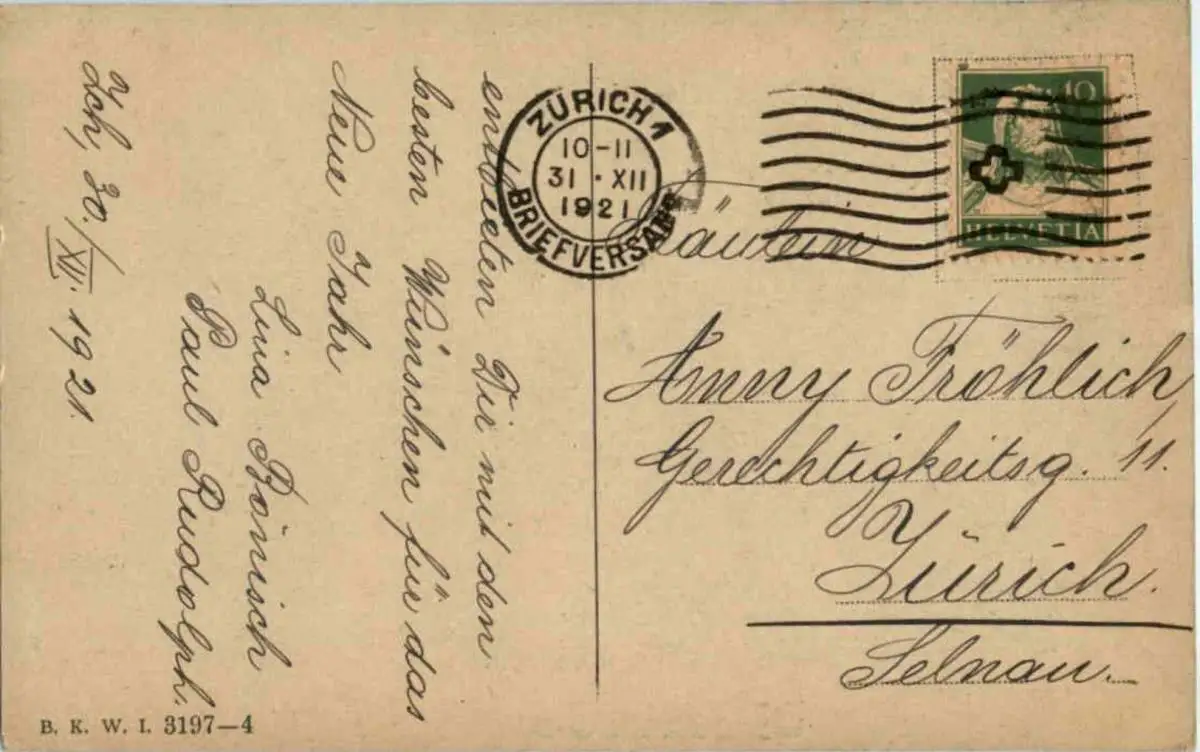 entbieten Dir mit den
besten Wünschen für das
Neue Jahr
Lina Bönisch
Paul Rudolph.
Zch, 30./XII. 1921.
B. K. W. I. 3197—4
ZÜRICH 1
10-11
31 · XII
1921
BRIEFVERSAND
10
HELVETIA
Fräulein
Anny Fröhlich,
Gerechtigkeitsg. 11.
Zürich.
Selnau.